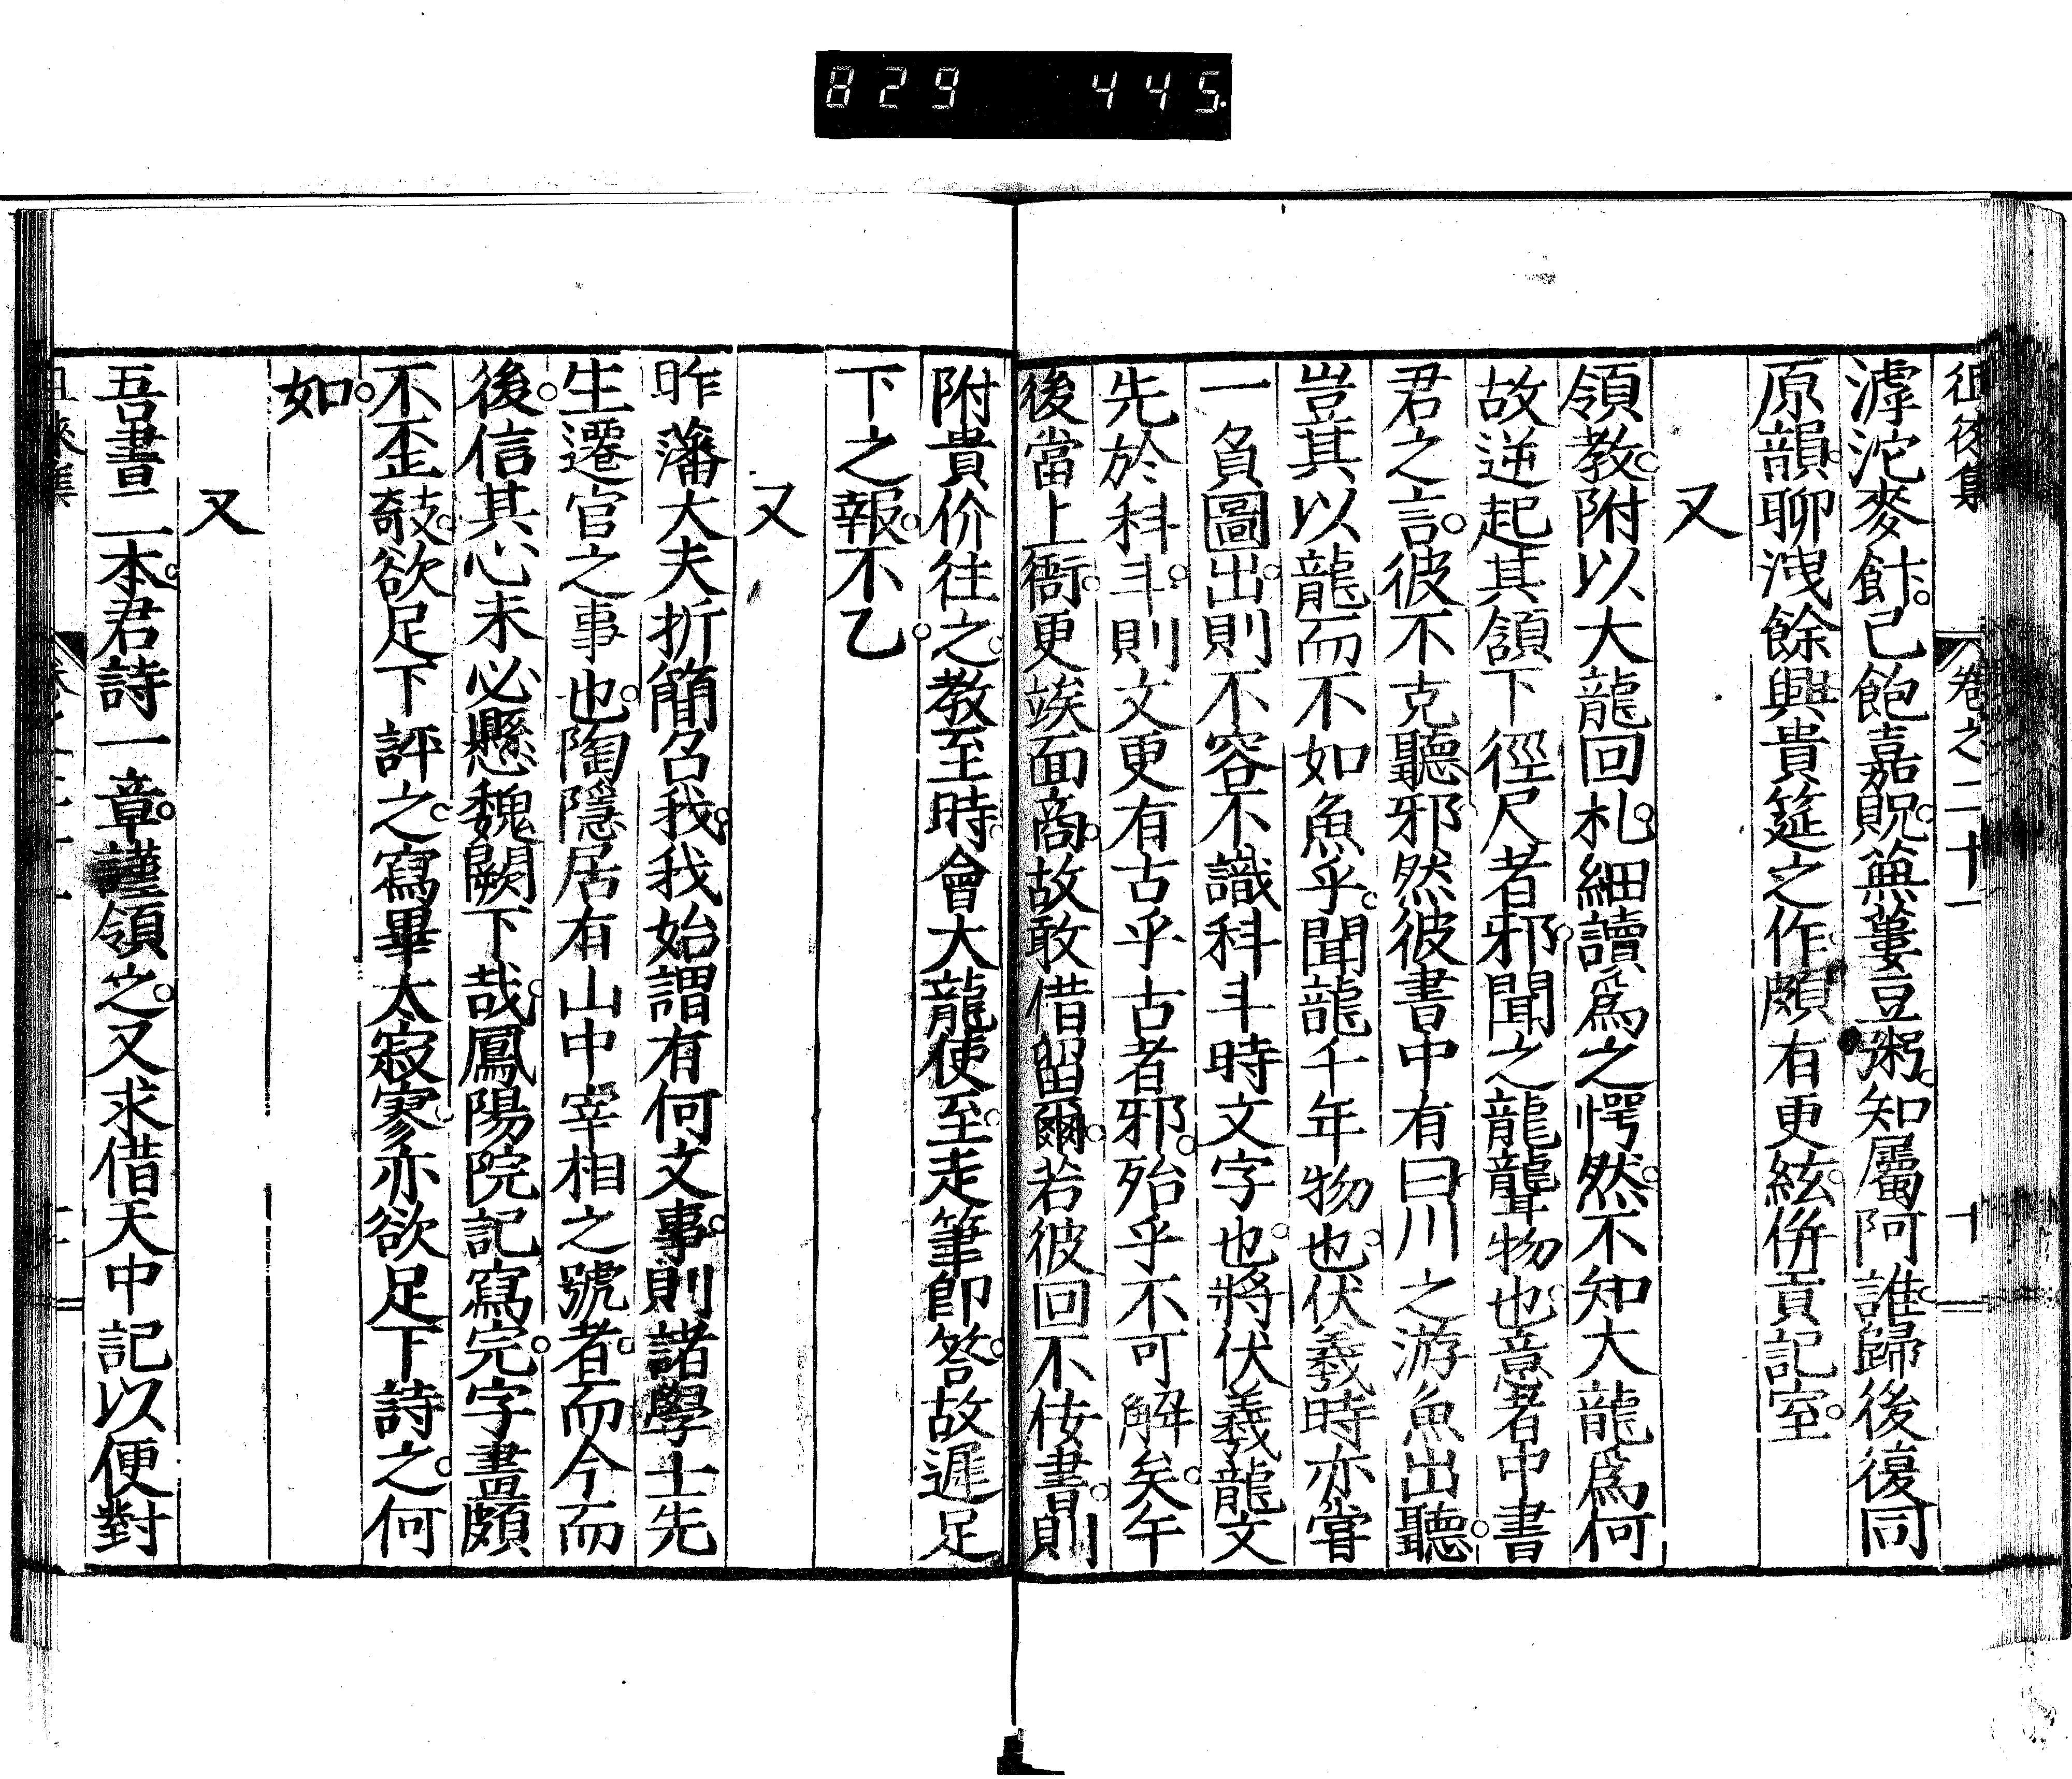 829 445
徂徠集 卷之二十一 十
滹沱麥飰。已飽嘉貺。蕪蔞豆粥。知屬阿誰。歸後復同
原韻。聊洩餘興。貴筵之作。頗有更絃。併貢記室。
又
領教。附以大龍回札。細讀爲之愕然。不知大龍爲何
故逆起其頷下徑尺者邪。聞之龍聾物也。意者中書
君之言。彼不克聽邪。然彼書中有曰川之游魚出聽。
豈其以龍而不如魚乎。聞龍千年物也。伏羲時亦甞
一負圖出。則不容不識科斗時文字也。將伏羲龍文
先於科斗。則文更有古乎古者邪。殆乎不可解矣。午
後當上衙。更竢面商。故敢借留爾。若彼回不佞書。則
附貴价往之。教至時。會大龍使至。走筆卽答。故遲足
下之報。不乙。
又
昨藩大夫折簡召我。我始謂有何文事。則諸學士先
生遷官之事也。陶隱居有山中宰相之號者。而今而
後。信其心未必懸魏闕下哉。鳳陽院記寫完。字畫頗
不歪攲。欲足下評之。寫畢太寂寥。亦欲足下詩之。何
如。
又
吾書二本。君詩一章。謹領之。又求借天中記以便對